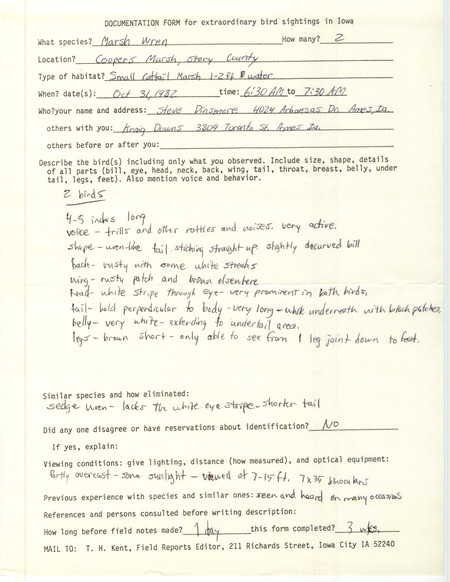 DOCUMENTATION FORM for extraordinary bird sightings in Iowa
What species? Marsh Wren How many? 2
Location? Coopers Marsh, Story County
Type of habitat? Small Cattail Marsh 1-2 ft water
When? date(s): Oct 31, 1982 time: 6:30 AM to 7:30 AM
Who? your name and address: Steve Dinsmore 4024 Arkansas Dr. Ames, Ia.
others with you: Kraig Downs 3809 Toronto St. Ames Ia.
others before or after you:
Describe the bird(s) including only what you observed. Include size, shape, details
of all parts (bill, eye, head, neck, back, wing, tail, throat, breast, belly, under
tail, legs, feet). Also mention voice and behavior.
2 birds
4-5 inches long
voice - trills and other rattles and noises. very active.
shape - wren-like tail sticking straight up. slightly decurved bill
back - rusty with some white streaks
wing - rusty patch and brown elsewhere
head - white stripe through eye - very prominent in both birds,
tail - held perpendicular to body - very long - white underneath with black patches,
belly - very white - extending to undertail area.
legs - brown short - only able to see from 1 leg joint down to feet.
Similar species and how eliminated:
sedge wren - lacks the white eye stripe - shorter tail
Did any one disagree or have reservations about identification? No
If yes, explain:
Viewing conditions: give lighting, distance (how measured), and optical equipment:
Partly overcast - some sunlight - viewed at 7-15 ft. 7x35 binoculars
Previous experience with species and similar ones: seen and heard on many occasions
References and persons consulted before writing description:
How long before field notes made? 1 day this form completed? 3 wks.
MAIL TO: T. H. Kent, Field Reports Editor, 211 Richards Street, Iowa City IA 52240